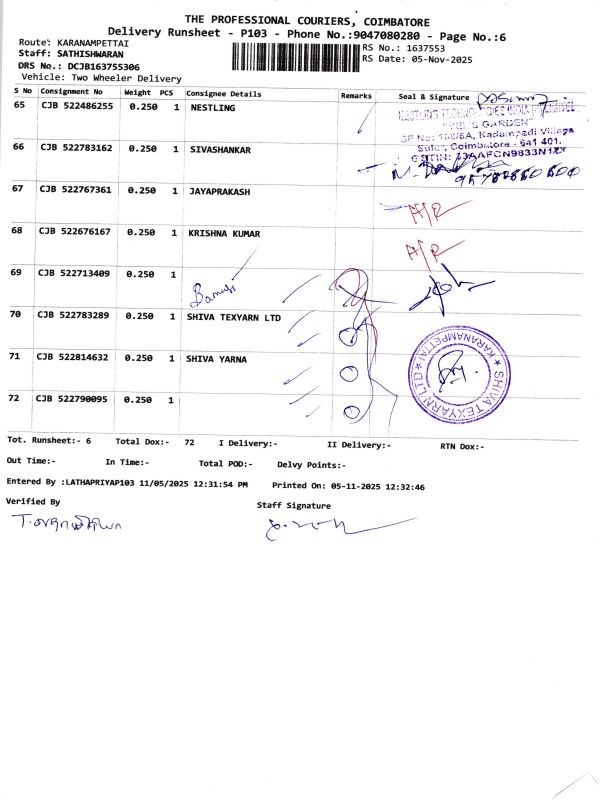 THE PROFESSIONAL COURIERS, COIMBATORE
Delivery Runsheet - P103 - Phone No.:9047080280 - Page No.:6
Route: KARANAMPETTAI
RS No.: 1637553
Staff: SATHISHWARAN
RS Date: 05-Nov-2025
DRS No.: DCJB163755306
Vehicle: Two Wheeler Delivery
S No Consignment No Weight PCS Consignee Details Remarks Seal & Signature
65 CJB 522486255 0.250 1 NESTLING
"VEL'S GARDEN"
SF No: 108/6A, Kadampadi Village
Sulur, Coimbatore - 641 401.
GSTIN: 33AAFCN9833N1ZY
66 CJB 522783162 0.250 1 SIVASHANKAR
67 CJB 522767361 0.250 1 JAYAPRAKASH
A/R
68 CJB 522676167 0.250 1 KRISHNA KUMAR
A/R
69 CJB 522713409 0.250 1
70 CJB 522783289 0.250 1 SHIVA TEXYARN LTD
71 CJB 522814632 0.250 1 SHIVA YARNA
SHIVA TEXYARN LTD ★ KARANAMPETTAI ★
72 CJB 522790095 0.250 1
Tot. Runsheet:- 6 Total Dox:- 72 I Delivery:- II Delivery:- RTN Dox:-
Out Time:- In Time:- Total POD:- Delvy Points:-
Entered By :LATHAPRIYAP103 11/05/2025 12:31:54 PM Printed On: 05-11-2025 12:32:46
Verified By Staff Signature